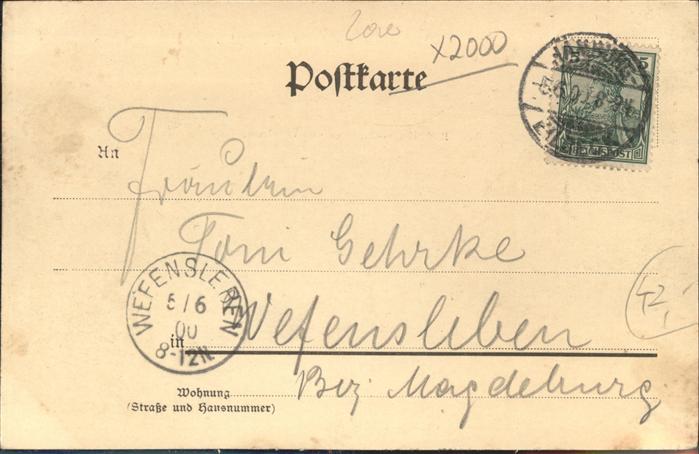 x2000
Postkarte
5 5
REICHSPOST
An
Fräulein
Toni Gehrke
WEFENSLEBEN
5/6
00
8-12N.
in Wefensleben
Bez Magdeburg
Wohnung
(Straße und Hausnummer)
42,-